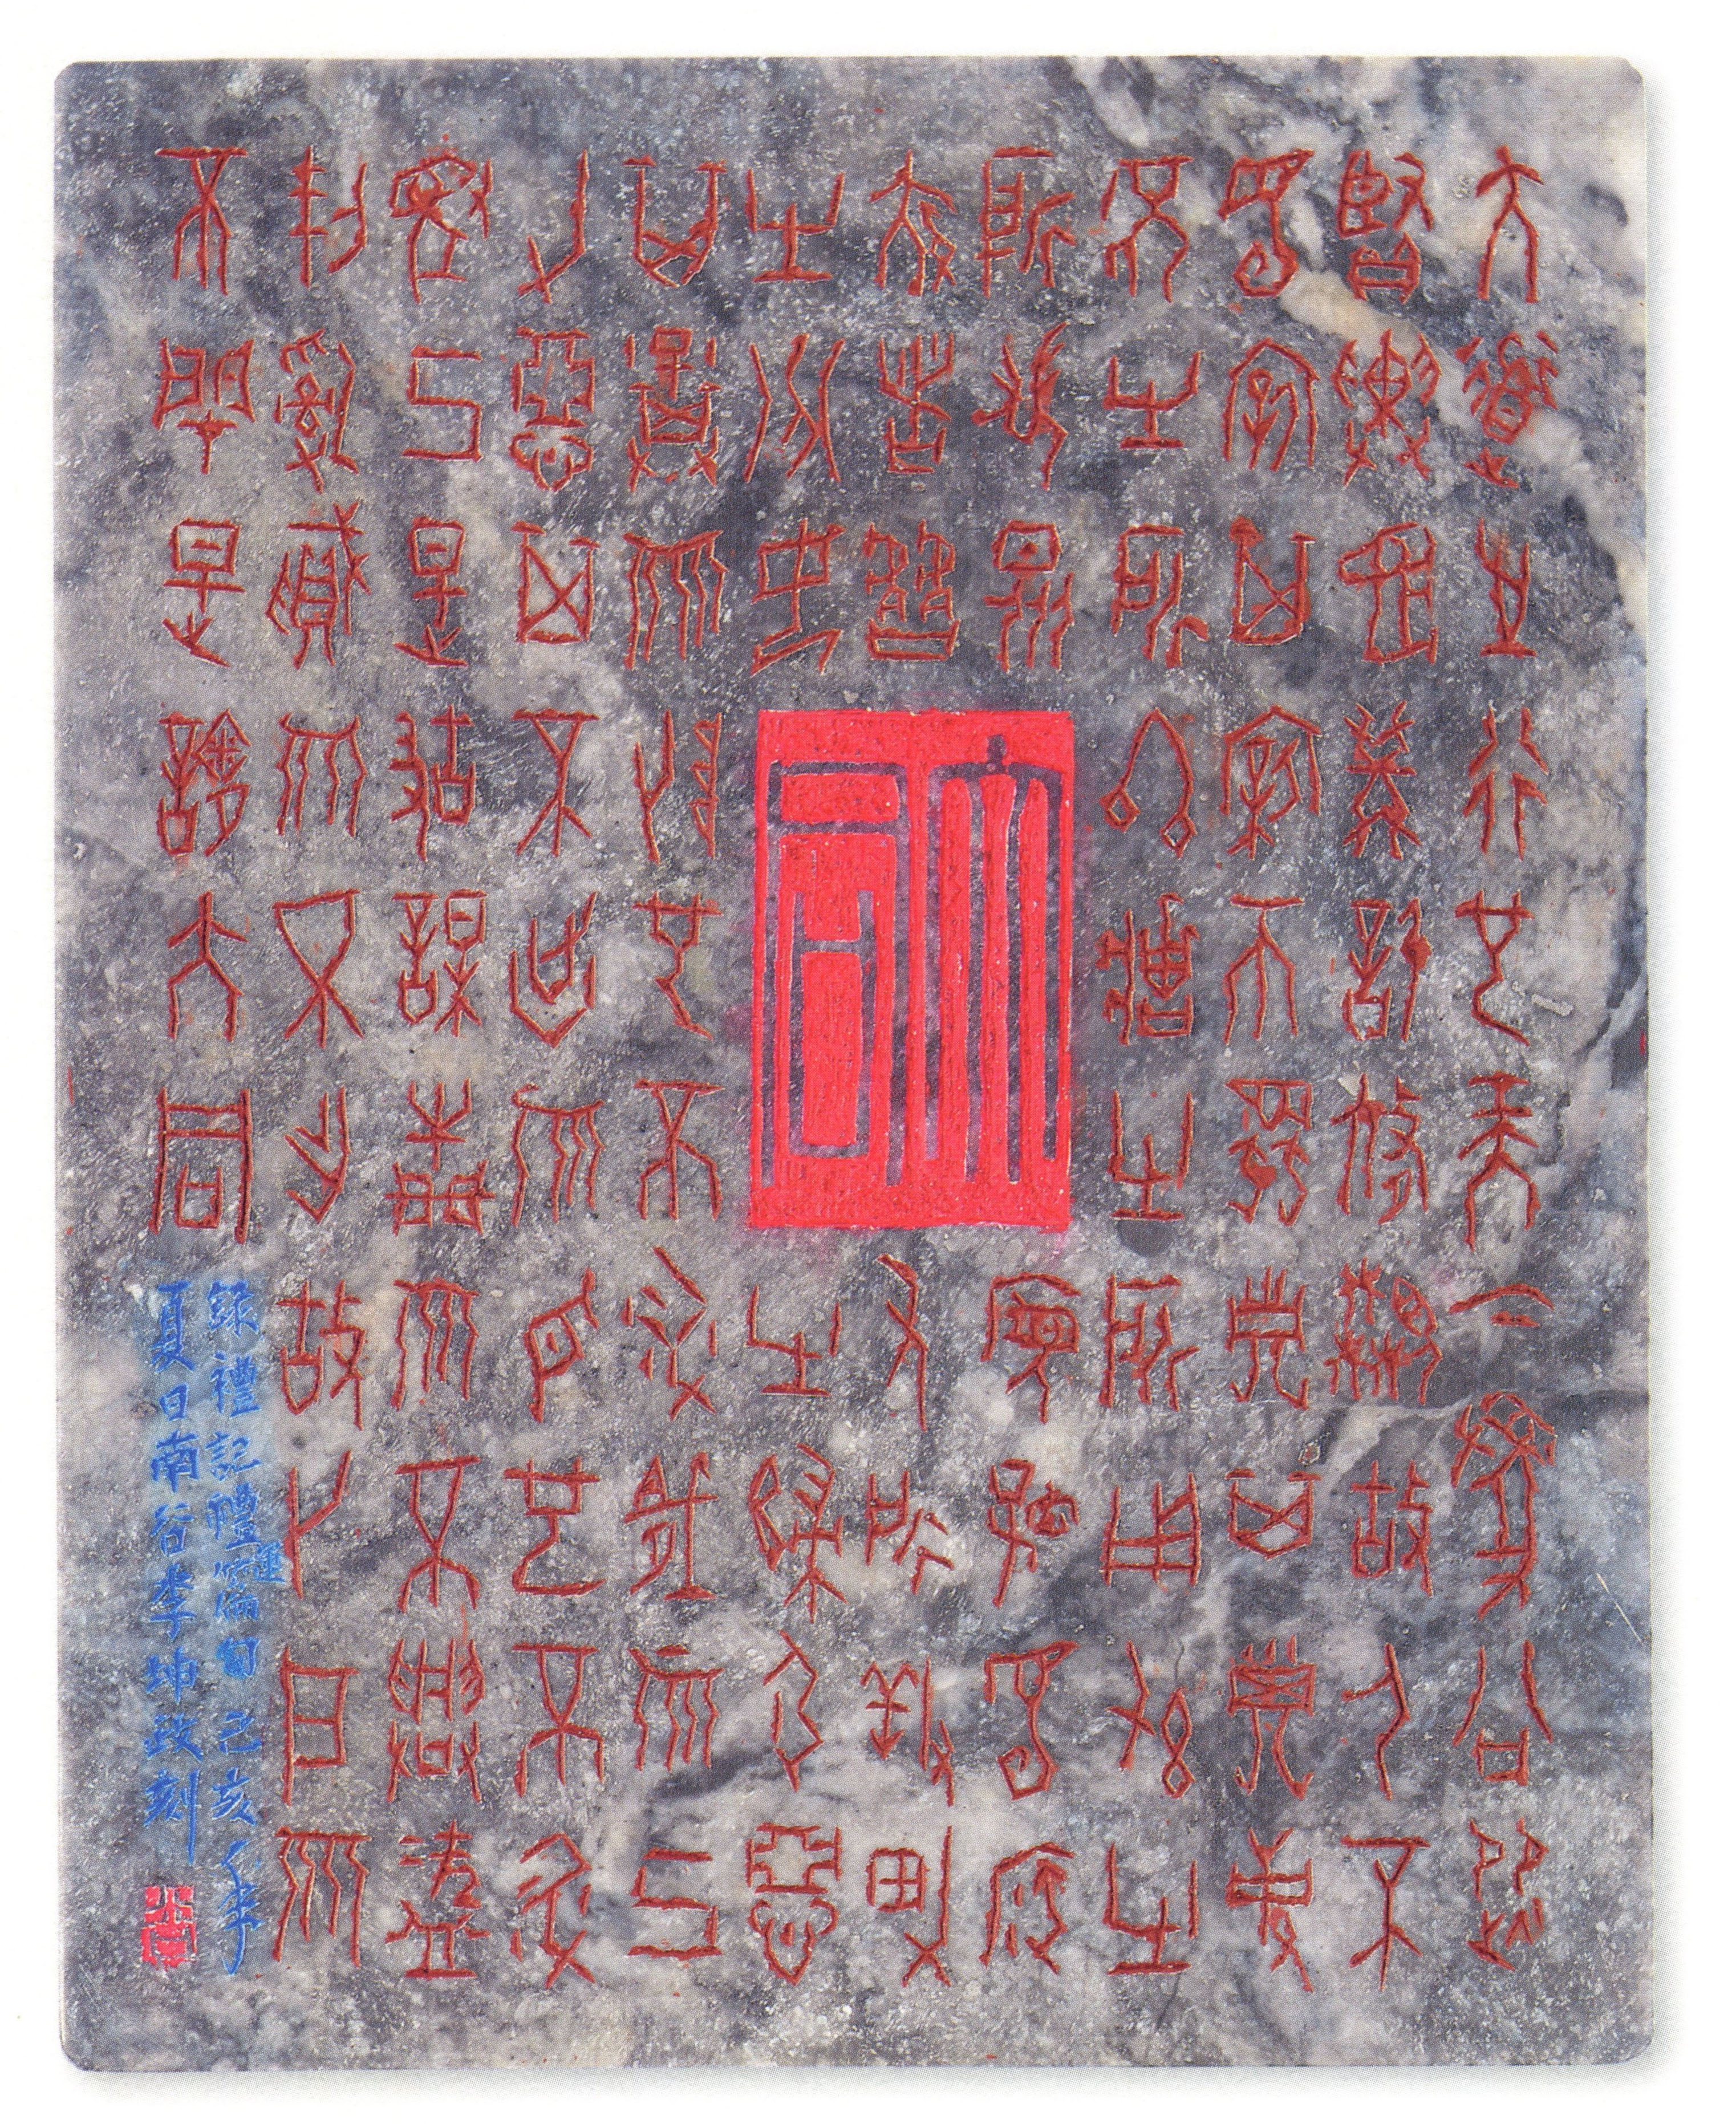 大道之行也天下爲公選
賢與能講信脩睦故人不
獨親其親不獨子其子使
老有所終壯有所用幼有
所長矜寡孤獨廢
疾者皆有所養男
有分女有歸貨惡
其棄於地也不必藏於己
力惡其不出於身也不必
爲己是故謀閉而不興盜
竊亂賊而不作故外戶而
不閉是謂大同
大同
錄禮記禮運篇句己亥年
夏日南谷李坤政刻